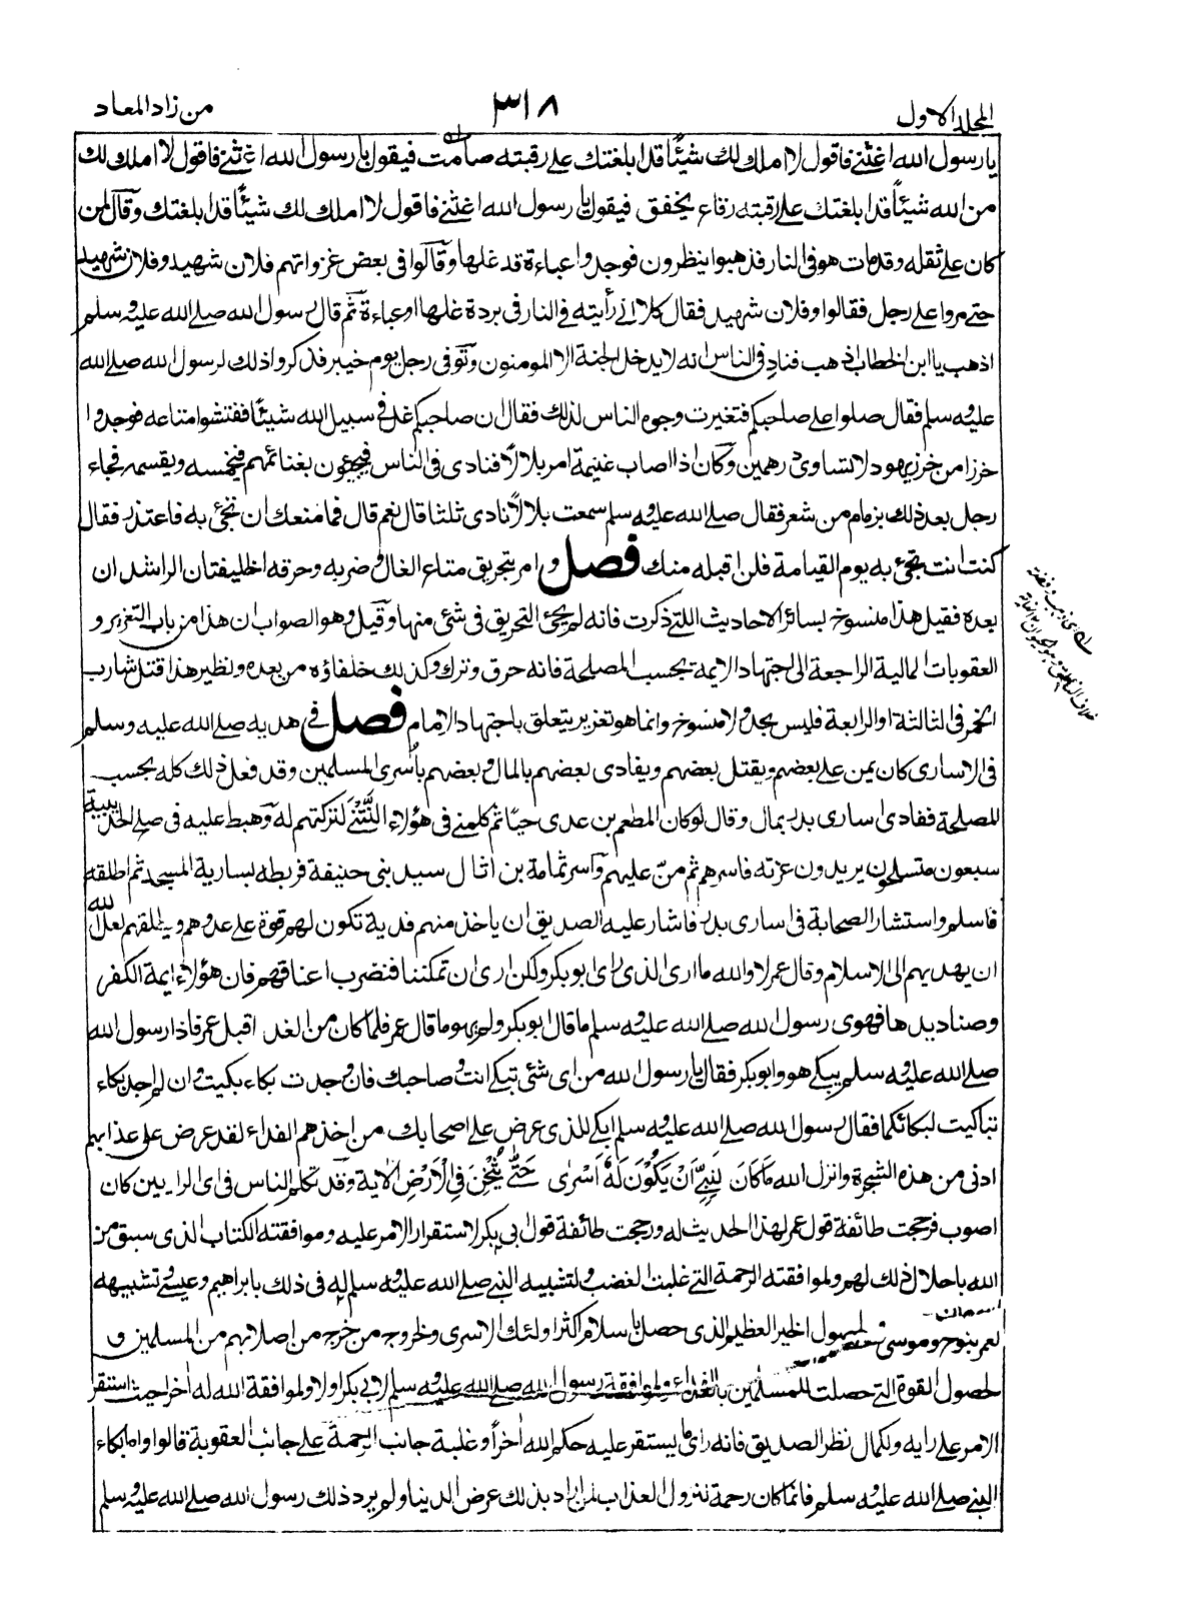 المجلد الاول
٣١٨
من زاد المعاد
يا رسول الله اغثنى فاقول لا املك لك شيئًا قد ابلغتك على رقبته صامت فيقول يا رسول الله اغثنى فاقول لا املك لك
من الله شيئًا قد ابلغتك على رقبته رقاع يخفق فيقول يا رسول الله اغثنى فاقول لا املك لك شيئًا قد ابلغتك وقال لمن
كان على ثقله وقد مات هو فى النار فذهبوا ينظرون فوجدوا عباءة قد غلها وقالوا فى بعض غزواتهم فلان شهيد وفلان شهيد
حتى مروا على رجل فقالوا وفلان شهيد فقال كلا انى رأيته فى النار فى بردة غلها او عباءة ثم قال رسول الله صلى الله عليه وسلم
اذهب يا ابن الخطاب اذهب فناد فى الناس انه لا يدخل الجنة الا المومنون وتوفى رجل يوم خيبر فذكروا ذلك لرسول الله صلى الله
عليه وسلم فقال صلوا على صاحبكم فتغيرت وجوه الناس لذلك فقال ان صاحبكم غل فى سبيل الله شيئًا ففتشوا متاعه فوجدوا
خرزا من خرز يهود لا تساوى درهمين وكان اذا اصاب غنيمة امر بلالًا فنادى فى الناس فيجيئون بغنائمهم فيخمسه ويقسمه فجاء
رجل بعد ذلك بزمام من شعر فقال صلى الله عليه وسلم سمعت بلالًا نادى ثلثا قال نعم قال فما منعك ان تجئ به فاعتذر فقال
كنت انت تجئ به يوم القيامة فلن اقبله منك فصل و امر بتحريق متاع الغال وضربه وحرقه الخليفتان الراشدان
بعده فقيل هذا منسوخ بسائر الاحاديث اللتى ذكرت فانه لم يجئ التحريق فى شئ منها وقيل وهو الصواب ان هذا من باب التعزير و
العقوبات المالية الراجعة الى اجتهاد الايمة بحسب المصلحة فانه حرق وترك وكذلك خلفاؤه من بعده ونظير هذا قتل شارب
الخمر فى الثالثة او الرابعة فليس بحد ولا منسوخ وانما هو تعزير يتعلق باجتهاد الامام فصل فى هديه صلى الله عليه وسلم
فى الاسارى كان يمن على بعضهم ويقتل بعضهم ويفادى بعضهم بالمال وبعضهم باُسرى المسلمين وقد فعل ذلك كله بحسب
المصلحة ففادى اسارى بدر بمال وقال لو كان المطعم بن عدى حيًا ثم كلمنى فى هؤلاء النَّتْنَى لتركتهم له وهبط عليه فى صلح الحديبية
سبعون متسلحون يريدون غزته فاسرهم ثم منّ عليهم واسر ثمامة بن اثال سيد بنى حنيفة فربطه بسارية المسجد ثم اطلقه
فاسلم واستشار الصحابة فى اسارى بدر فاشار عليه الصديق ان ياخذ منهم فدية تكون لهم قوة على عدوهم ويطلقهم لعل الله
ان يهديهم الى الاسلام وقال عمر لا والله ما ارى الذى راى ابو بكر ولكن ارى ان تمكننا فنضرب اعناقهم فان هؤلاء ايمة الكفر
وصناديدها فهوى رسول الله صلى الله عليه وسلم ما قال ابو بكر ولم يهو ما قال عمر فلما كان من الغد اقبل عمر فاذا رسول الله
صلى الله عليه وسلم يبكى هو وابو بكر فقال يا رسول الله من اى شئ تبكى انت وصاحبك فان وجدت بكاء بكيت وان لم اجد بكاء
تباكيت لبكائكما فقال رسول الله صلى الله عليه وسلم ابكى للذى عرض على اصحابك من اخذهم الفداء لقد عرض على عذابهم
ادنى من هذه الشجرة وانزل الله مَا كَانَ لِنَبِيٍّ اَنْ يَكُوْنَ لَهٗ اَسْرٰى حَتّٰى يُثْخِنَ فِى الْاَرْضِ الآية وقد تكلم الناس فى اى الرايين كان
اصوب فرجحت طائفة قول عمر لهذا الحديث له ورجحت طائفة قول ابى بكر لاستقرار الامر عليه وموافقته الكتاب الذى سبق من
الله باحلال ذلك لهم ولموافقته الرحمة التى غلبت الغضب ولتشبيه النبى صلى الله عليه وسلم له فى ذلك بابراهيم وعيسى وتشبيهه
لعمر بنوح وموسى ولحصول الخير العظيم الذى حصل باسلام اكثر اولئك الاسرى ولخروج من خرج من اصلابهم من المسلمين و
لحصول القوة التى حصلت للمسلمين بالفداء ولموافقة رسول الله صلى الله عليه وسلم لابى بكر اولا ولموافقة الله له اخرا حيث استقر
الامر على رايه ولكمال نظر الصديق فانه راى ما يستقر عليه حكم الله اخرًا وغلبة جانب الرحمة على جانب العقوبة قالوا واما بكاء
النبى صلى الله عليه وسلم فانما كان رحمة لنزول العذاب لمن اراد بذلك عرض الدنيا ولم يرد ذلك رسول الله صلى الله عليه وسلم